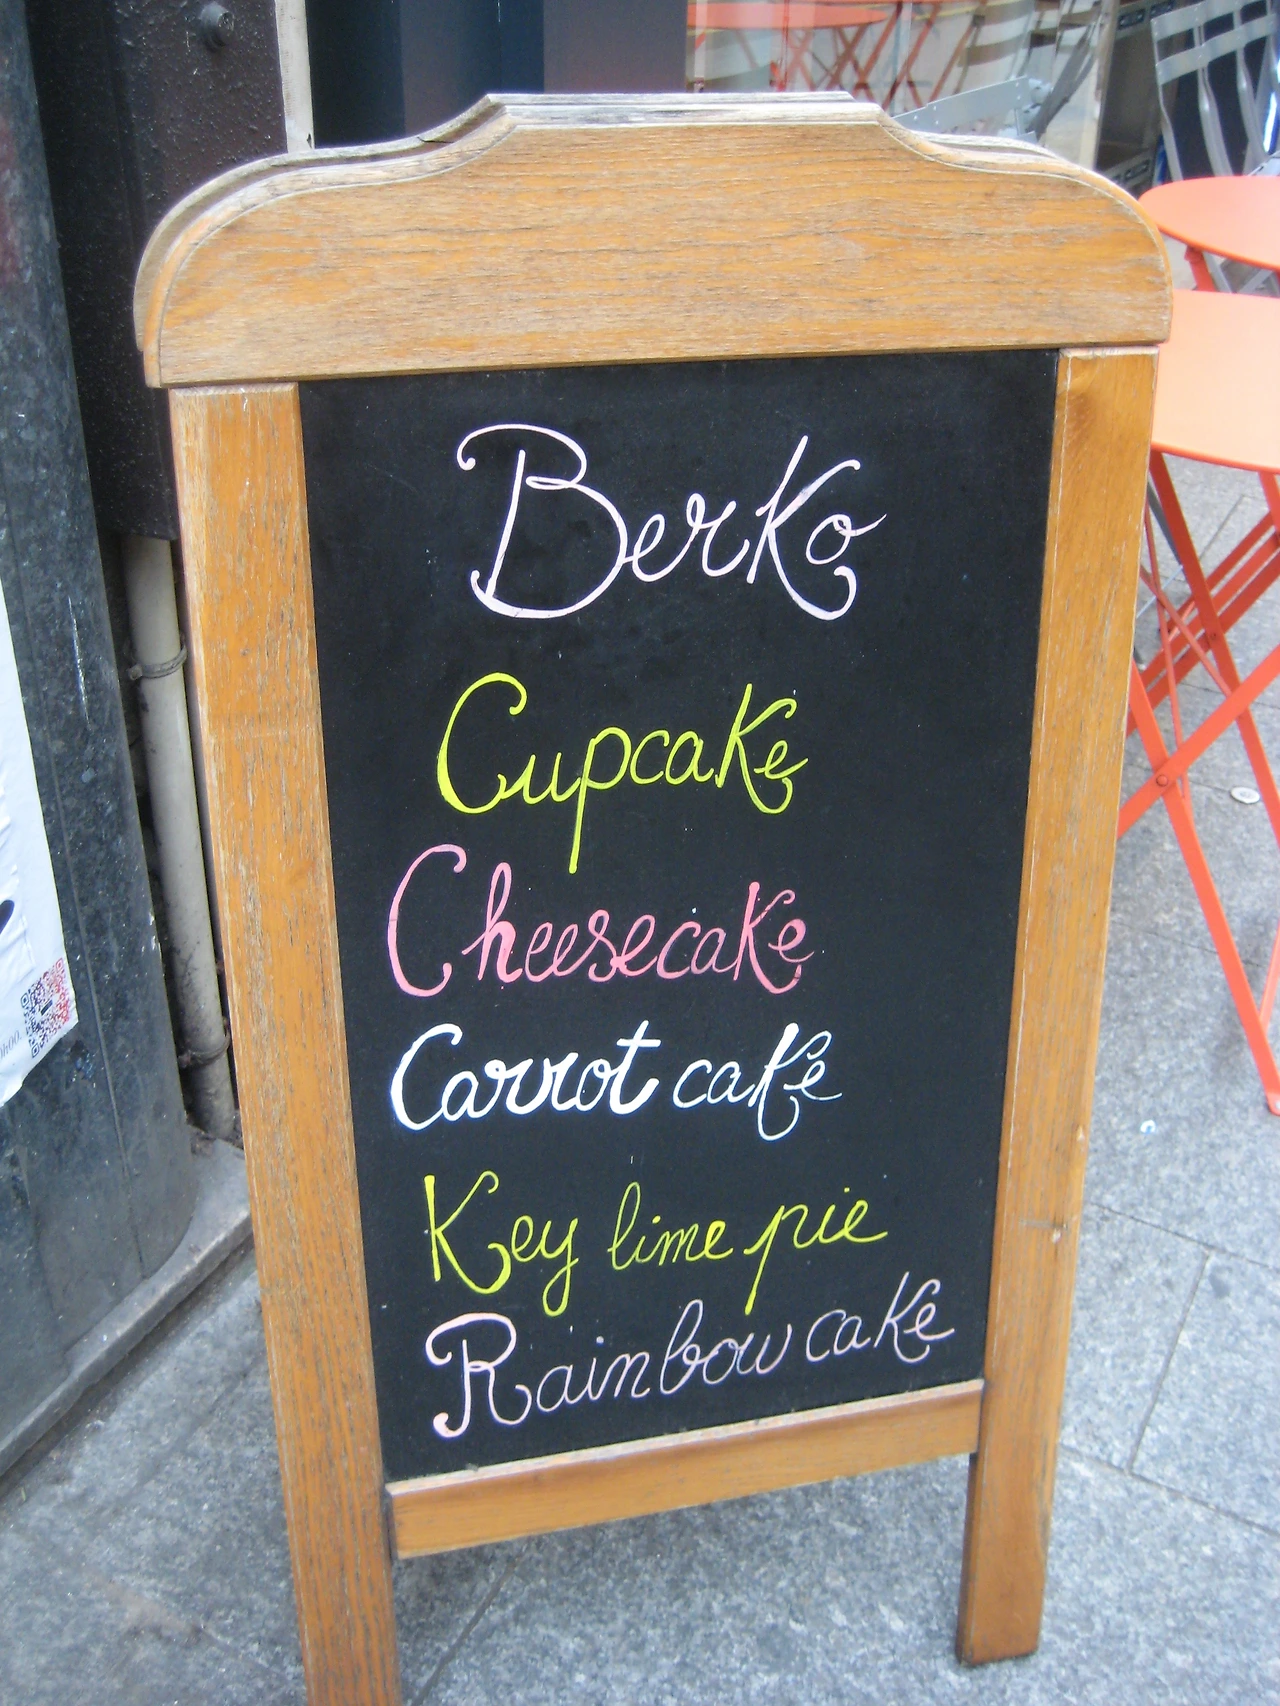 Berko
Cupcake
Cheesecake
Carrot cake
Key lime pie
Rainbow cake